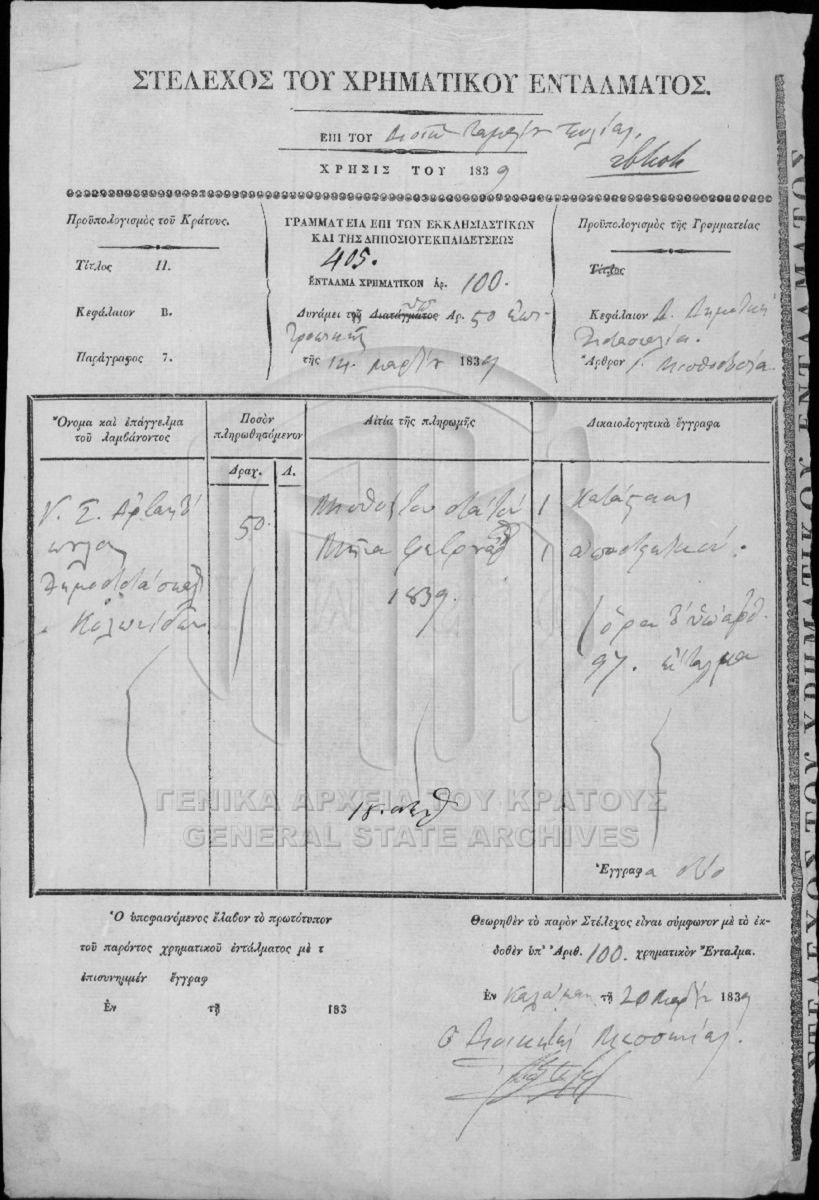 ΣΤΕΛΕΧΟΣ ΤΟΥ ΧΡΗΜΑΤΙΚΟΥ ΕΝΤΑΛΜΑΤΟΣ.
ΕΠΙ ΤΟΥ
ΧΡΗΣΙΣ ΤΟΥ 1839
Προϋπολογισμὸς τοῦ Κράτους.
Τίτλος II.
Κεφάλαιον Β.
Παράγραφος 7.
ΓΡΑΜΜΑΤΕΙΑ ΕΠΙ ΤΩΝ ΕΚΚΛΗΣΙΑΣΤΙΚΩΝ
ΚΑΙ ΤΗΣ ΔΗΜΟΣΙΟΥ ΕΚΠΑΙΔΕΥΣΕΩΣ
405.
ΕΝΤΑΛΜΑ ΧΡΗΜΑΤΙΚΟΝ Ἀρ. 100.
Δυνάμει τοῦ Διατάγματος Ἀρ. 50
τῆς 14 Μαρτίου 1839
Προϋπολογισμὸς τῆς Γραμματείας
Τίτλος
Κεφάλαιον Δ. Δημοτικὴ
Διδασκαλία.
Ἄρθρον 1. Μισθοδοσία
Ὄνομα καὶ ἐπάγγελμα
τοῦ λαμβάνοντος
Ποσὸν
πληρωθησόμενον
Δραχ. Λ.
Αἰτία τῆς πληρωμῆς
Δικαιολογητικὰ ἔγγραφα
Δημοδιδάσκαλ
50
Μισθὸς του διὰ τὸν
Μῆνα Φεβρουάρ
1839.
1
1 ἀποδεικτικόν.
ὅρα
97. ἔνταλμα
Ἔγγραφα δύο
Ὁ ὑποφαινόμενος ἔλαβον τὸ πρωτότυπον
τοῦ παρόντος χρηματικοῦ ἐντάλματος μὲ τ
ἐπισυνημμέν ἔγγραφ
Ἐν τῇ 183
Θεωρηθὲν τὸ παρὸν Στέλεχος εἶναι σύμφωνον μὲ τὸ ἐκ-
δοθὲν ὑπ' Ἀριθ. 100. χρηματικὸν Ἔνταλμα.
Ἐν Καλάμαις τῇ 20 Μαρτίου 1839
Ὁ Διοικητὴς Μεσσηνίας.
ΓΕΝΙΚΑ ΑΡΧΕΙΑ ΤΟΥ ΚΡΑΤΟΥΣ
GENERAL STATE ARCHIVES
ΣΤΕΛΕΧΟΣ ΤΟΥ ΧΡΗΜΑΤΙΚΟΥ ΕΝΤΑΛΜΑΤΟΣ